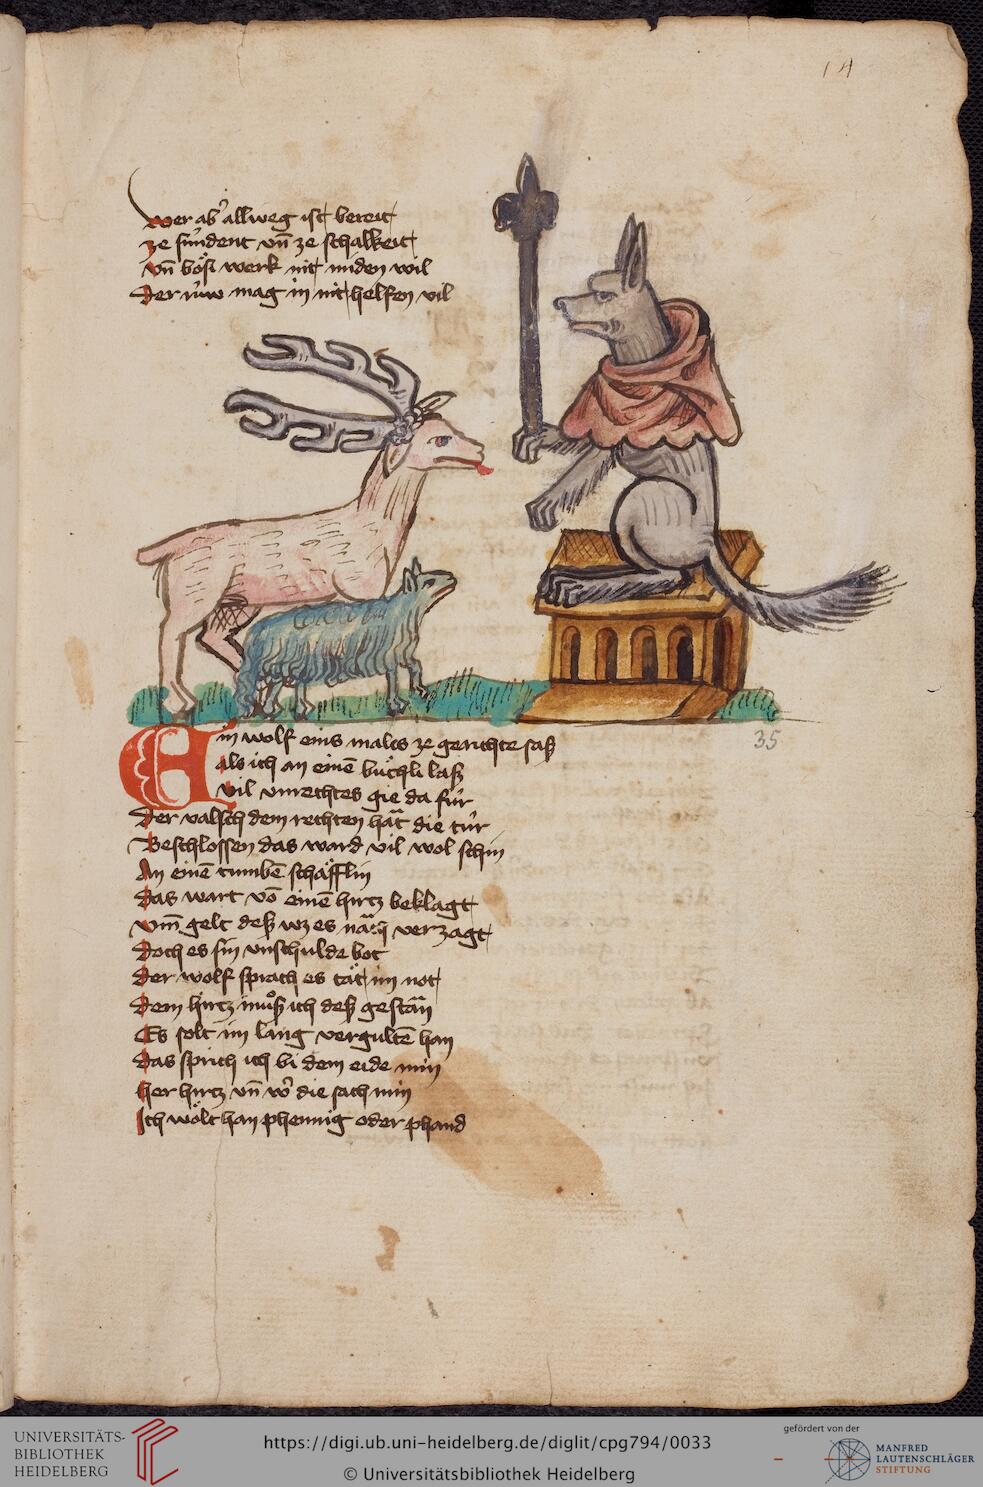 14
wer ab' allweg ist bereit
ze sündent vn̄ ze schalkeit
vn̄ bösi werk nit miden wil
Der rüw mag in nit helfen vil
Ein wolf eins males ze gerichte saß
als ich an einē büchli laß
vil vnrechtes gie da für
Der valsch dem rechten hat die tür
Beschlossen das ward vil wol schin
An einē tumbē schäfflin
Das wart vō einē hirtz beklagt
vm̄ gelt deß wz es verzagt
Doch es sin vnschulde bot
Der wolf sprach es tät im not
Dem hirtz muͦß ich deß gestān
Es solt im lang vergultē han
Das sprich ich bi dem eide min
her hirtz vn̄ w' die sach min
Ich wölt han phennig oder phand
35
UNIVERSITÄTS-
BIBLIOTHEK
HEIDELBERG
https://digi.ub.uni-heidelberg.de/diglit/cpg794/0033
© Universitätsbibliothek Heidelberg
gefördert von der
MANFRED
LAUTENSCHLÄGER
STIFTUNG